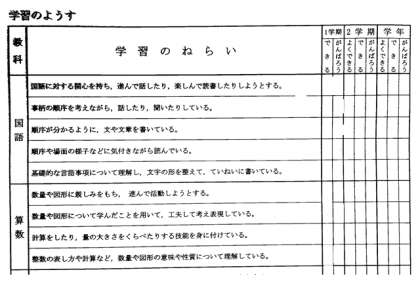 学習のようす
教科
学習のねらい
1学期
2学期
学年
できる
がんばろう
よくできる
できる
がんばろう
よくできる
できる
がんばろう
国語
国語に対する関心を持ち、進んで話したり、楽しんで読書したりしようとする。
事柄の順序を考えながら、話したり、聞いたりしている。
順序が分かるように、文や文章を書いている。
順序や場面の様子などに気付きながら読んでいる。
基礎的な言語事項について理解し、文字の形を整えて、ていねいに書いている。
算数
数量や図形に親しみをもち、進んで活動しようとする。
数量や図形について学んだことを用いて、工夫して考え表現している。
計算をしたり、量の大きさをくらべたりする技能を身に付けている。
整数の表し方や計算など、数量や図形の意味や性質について理解している。